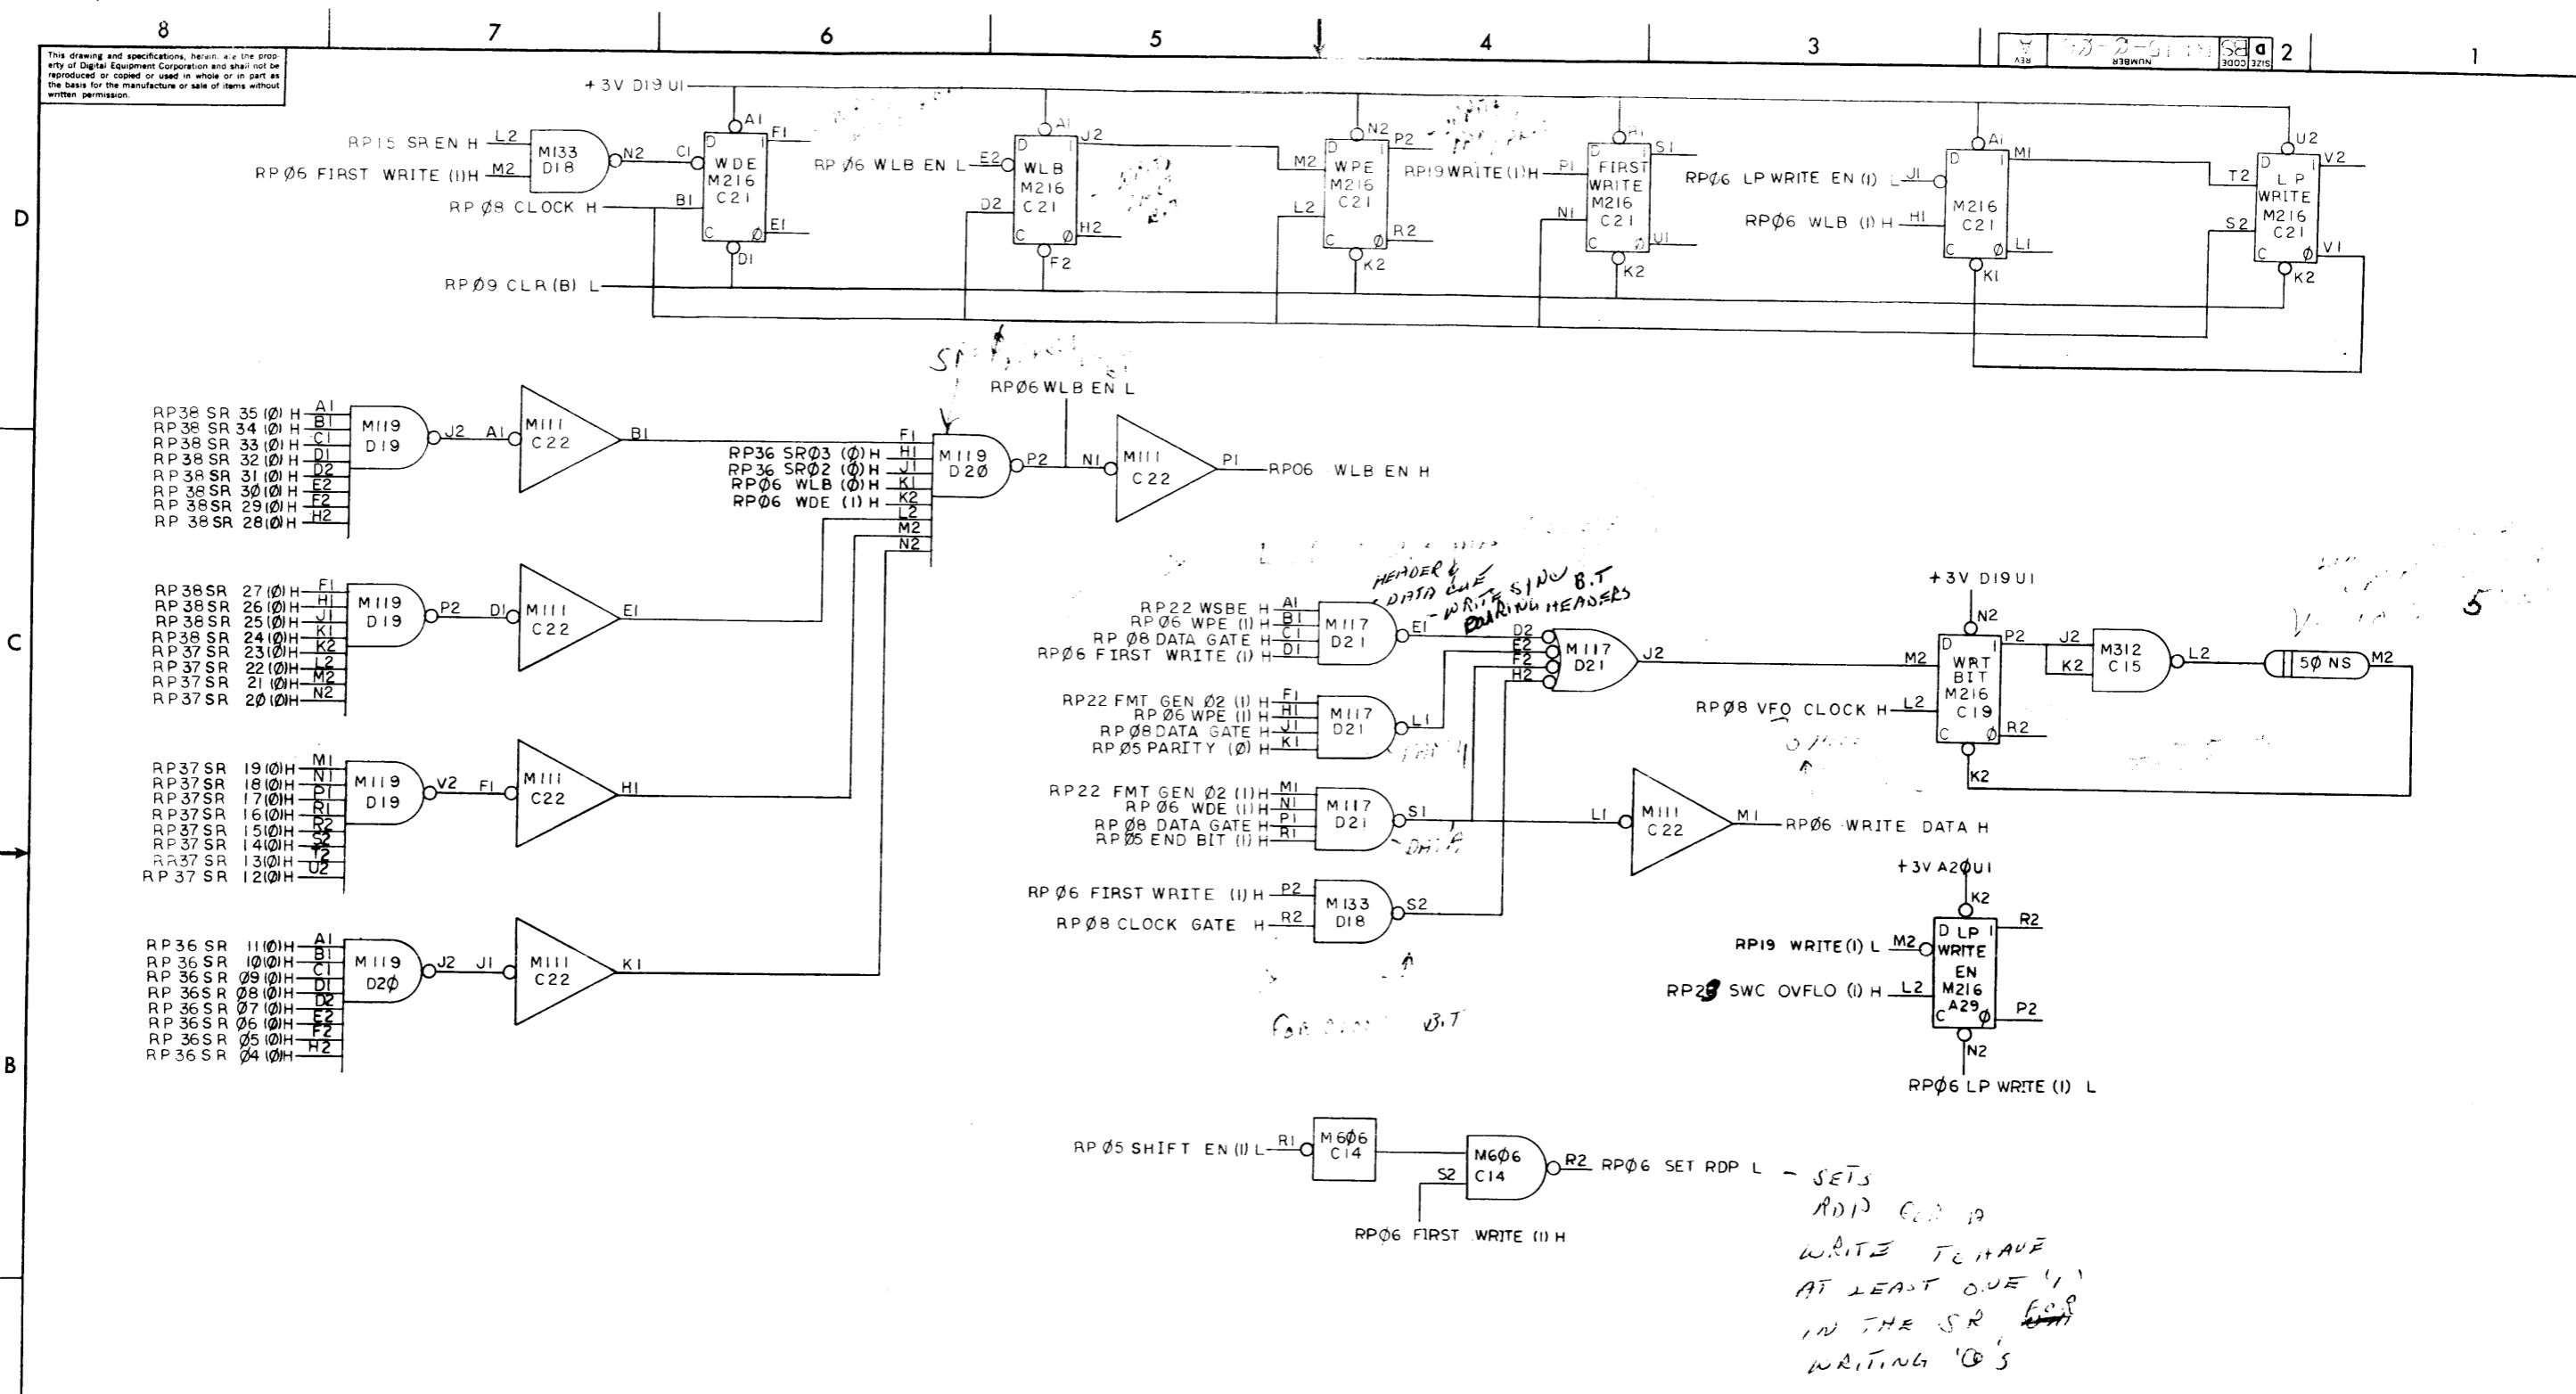 8 7 6 5 4 3 2 1
This drawing and specifications, herein, are the prop-
erty of Digital Equipment Corporation and shall not be
reproduced or copied or used in whole or in part as
the basis for the manufacture or sale of items without
written permission.
REV
NUMBER
CODE
SIZE
A
BS
D
D
C
B
+3V D19 U1
RP15 SR EN H L2
RPØ6 FIRST WRITE (1) H M2
M133
D18
N2
RP Ø8 CLOCK H
RPØ9 CLR (B) L
A1
C1
D 1
F1
WDE
M216
C21
B1
C Ø
E1
D1
RP Ø6 WLB EN L E2
A1
D 1
J2
WLB
M216
C21
D2
C Ø
H2
F2
N2
M2
D 1
P2
WPE
M216
C21
L2
C Ø
R2
K2
RP19 WRITE (1) H P1
R1
D 1
S1
FIRST
WRITE
M216
C21
N1
C Ø
U1
K2
RPØ6 LP WRITE EN (1) L J1
RPØ6 WLB (1) H H1
A1
D 1
M1
M216
C21
C Ø
L1
K1
U2
T2
D 1
V2
LP
WRITE
M216
C21
S2
C Ø
V1
K2
RP38 SR 35 (Ø) H A1
RP38 SR 34 (Ø) H B1
RP38 SR 33 (Ø) H C1
RP38 SR 32 (Ø) H D1
RP38 SR 31 (Ø) H D2
RP38SR 3Ø (Ø) H E2
RP 38SR 29(Ø) H F2
RP 38SR 28(Ø) H H2
M119
D19
J2 A1
M111
C22
B1
RP38SR 27 (Ø) H F1
RP38SR 26 (Ø) H H1
RP38SR 25 (Ø) H J1
RP38 SR 24 (Ø) H K1
RP37 SR 23 (Ø) H K2
RP37 SR 22 (Ø) H L2
RP37 SR 21 (Ø) H M2
RP37SR 2Ø (Ø) H N2
M119
D19
P2 D1
M111
C22
E1
RP37SR 19(Ø)H M1
RP37SR 18(Ø)H N1
RP37SR 17(Ø)H P1
RP37SR 16(Ø)H R1
RP37SR 15(Ø)H R2
RP37SR 14(Ø)H S2
RR37 SR 13(Ø)H T2
RP 37 SR 12(Ø)H U2
M119
D19
V2 F1
M111
C22
H1
RP36 SR 11(Ø)H A1
RP36 SR 1Ø(Ø)H B1
RP36SR Ø9(Ø)H C1
RP36SR Ø8(Ø)H D1
RP36SR Ø7(Ø)H D2
RP36SR Ø6(Ø)H E2
RP36SR Ø5(Ø)H F2
RP36SR Ø4(Ø)H H2
M119
D2Ø
J2 J1
M111
C22
K1
RPØ6 WLB EN L
F1
RP36 SRØ3 (Ø) H H1
RP36 SRØ2 (Ø) H J1
RPØ6 WLB (Ø) H K1
RPØ6 WDE (1) H K2
L2
M2
N2
M119
D2Ø
P2 N1
M111
C22
P1
RPO6 WLB EN H
HEADER &
DATA
WRITE SYNC BIT
HEADERS
RP22 WSBE H A1
RP Ø6 WPE (1) H B1
RP Ø8 DATA GATE H C1
RPØ6 FIRST WRITE (1) H D1
M117
D21
E1
RP22 FMT GEN Ø2 (1) H F1
RP Ø6 WPE (1) H H1
RP Ø8 DATA GATE H J1
RP Ø5 PARITY (Ø) H K1
M117
D21
L1
RP22 FMT GEN Ø2 (1) H M1
RP Ø6 WDE (1) H N1
RP Ø8 DATA GATE H P1
RPØ5 END BIT (1) H R1
M117
D21
S1
DATA
RP Ø6 FIRST WRITE (1) H P2
RPØ8 CLOCK GATE H R2
M133
D18
S2
D2
E2
F2
H2
M117
D21
J2
L1
M111
C22
M1
RPØ6 WRITE DATA H
+3V D19U1
N2
M2
D 1
P2
WRT
BIT
M216
C19
RPØ8 VFO CLOCK H L2
C Ø
R2
K2
J2
K2
M312
C15
L2
5Ø NS
M2
5
+3V A2ØU1
K2
RP19 WRITE(1) L M2
D LP 1
R2
WRITE
EN
M216
A29
SWC OVFLO (1) H L2
C Ø
P2
N2
RPØ6 LP WRITE (1) L
BIT
RP Ø5 SHIFT EN (1) L R1
M6Ø6
C14
S2
M6Ø6
C14
R2
RPØ6 SET RDP L
RPØ6 FIRST WRITE (1) H
- SETS
RDP FOR A
WRITE TO HAVE
AT LEAST ONE '1'
IN THE SR FOR
WRITING 'Ø'S